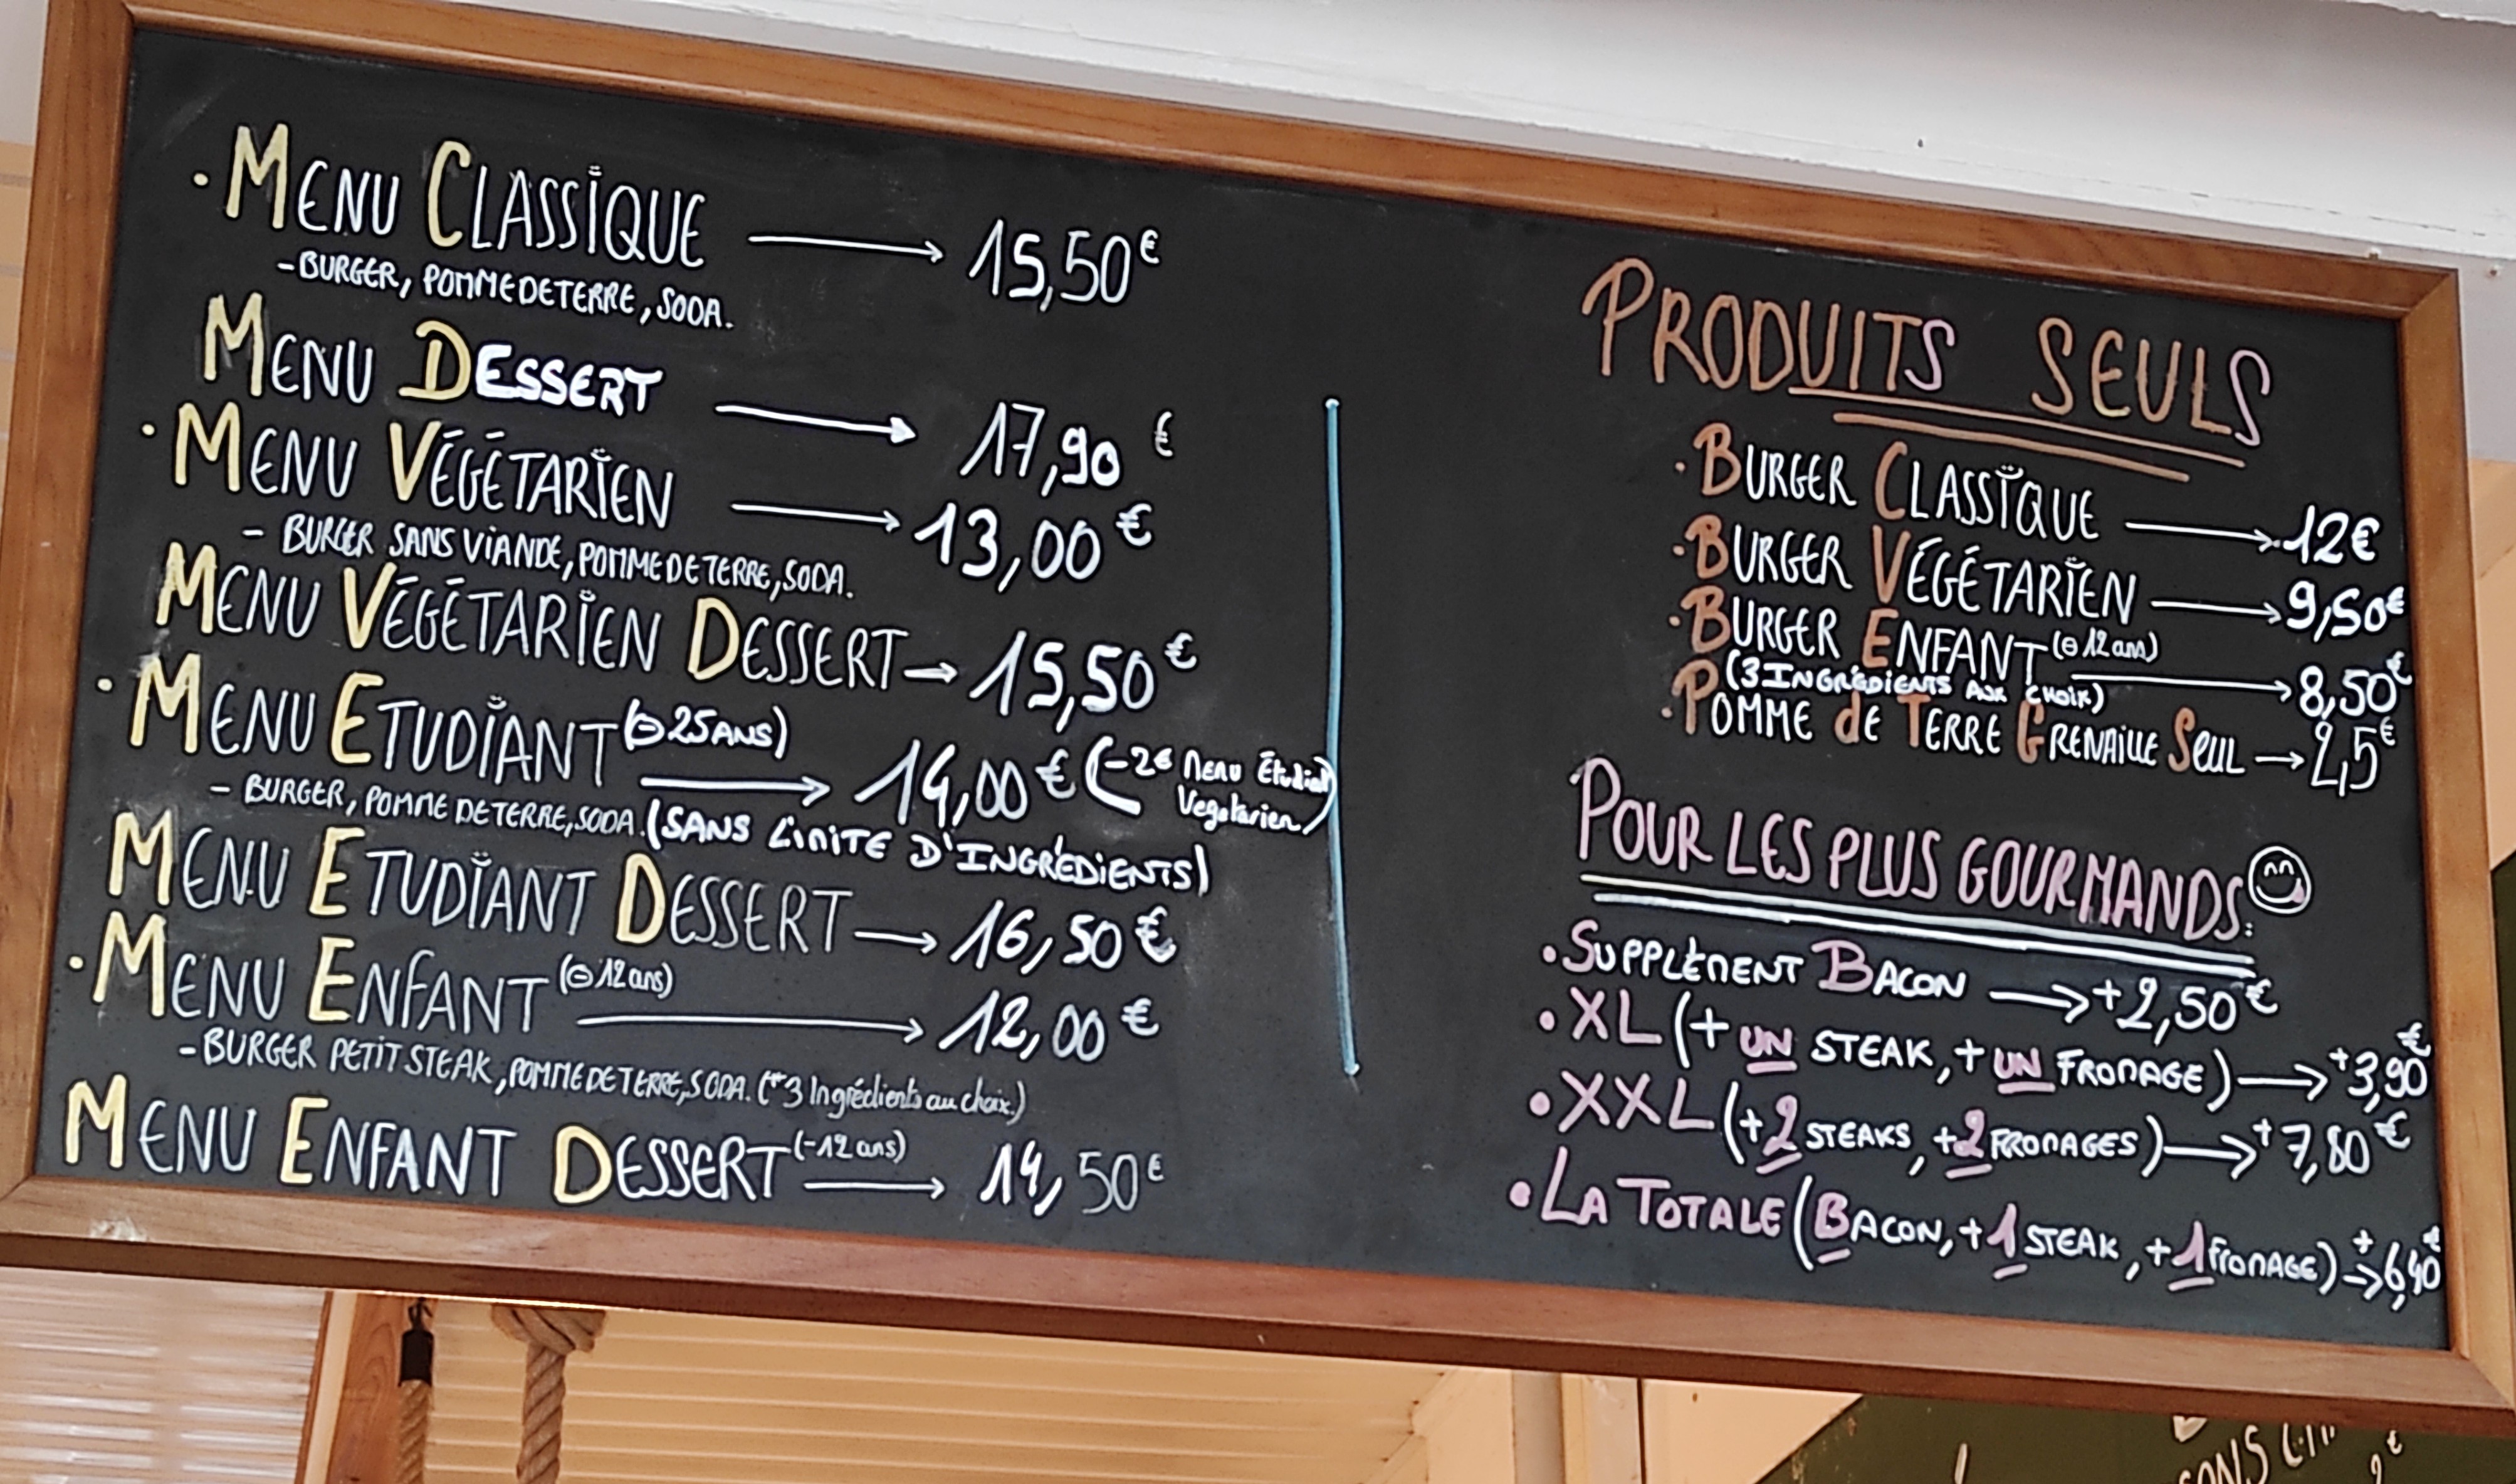 · MENU CLASSIQUE → 15,50€
- BURGER, POMME DE TERRE, SODA.
MENU DESSERT → 17,90 €
· MENU VÉGÉTARIEN → 13,00 €
- BURGER SANS VIANDE, POMME DE TERRE, SODA.
MENU VÉGÉTARIEN DESSERT → 15,50 €
· MENU ETUDIANT (⊖ 25 ANS) → 14,00 € (-2€ Menu Étudiant
Vegetarien)
- BURGER, POMME DE TERRE, SODA. (SANS LIMITE D'INGRÉDIENTS)
MENU ETUDIANT DESSERT → 16,50 €
· MENU ENFANT (⊖ 12 ans) → 12,00 €
- BURGER PETIT STEAK, POMME DE TERRE, SODA. (*3 Ingrédients au choix.)
MENU ENFANT DESSERT (-12 ans) → 14,50€
PRODUITS SEULS
· BURGER CLASSIQUE → 12€
· BURGER VÉGÉTARIEN → 9,50€
· BURGER ENFANT (⊖ 12 ans) → 8,50€
(3 INGRÉDIENTS AUX CHOIX)
· POMME de TERRE GRENAILLE SEUL → 2,5€
POUR LES PLUS GOURMANDS:
· SUPPLÈMENT BACON → +2,50€
· XL (+ UN STEAK, + UN FROMAGE) → +3,90€
· XXL (+2 STEAKS, +2 FROMAGES) → +7,80€
· LA TOTALE (BACON, +1 STEAK, +1 fROMAGE) → +6,40€